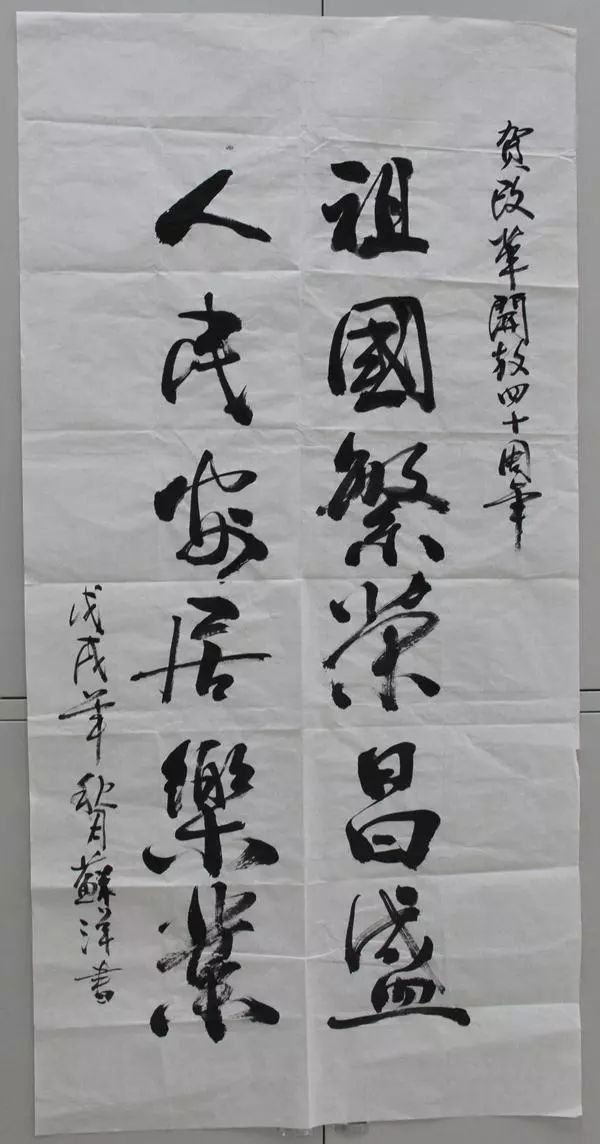 賀改革開放四十周年
祖國繁荣昌盛
人民安居樂業
戊戌年秋月蘇洋書